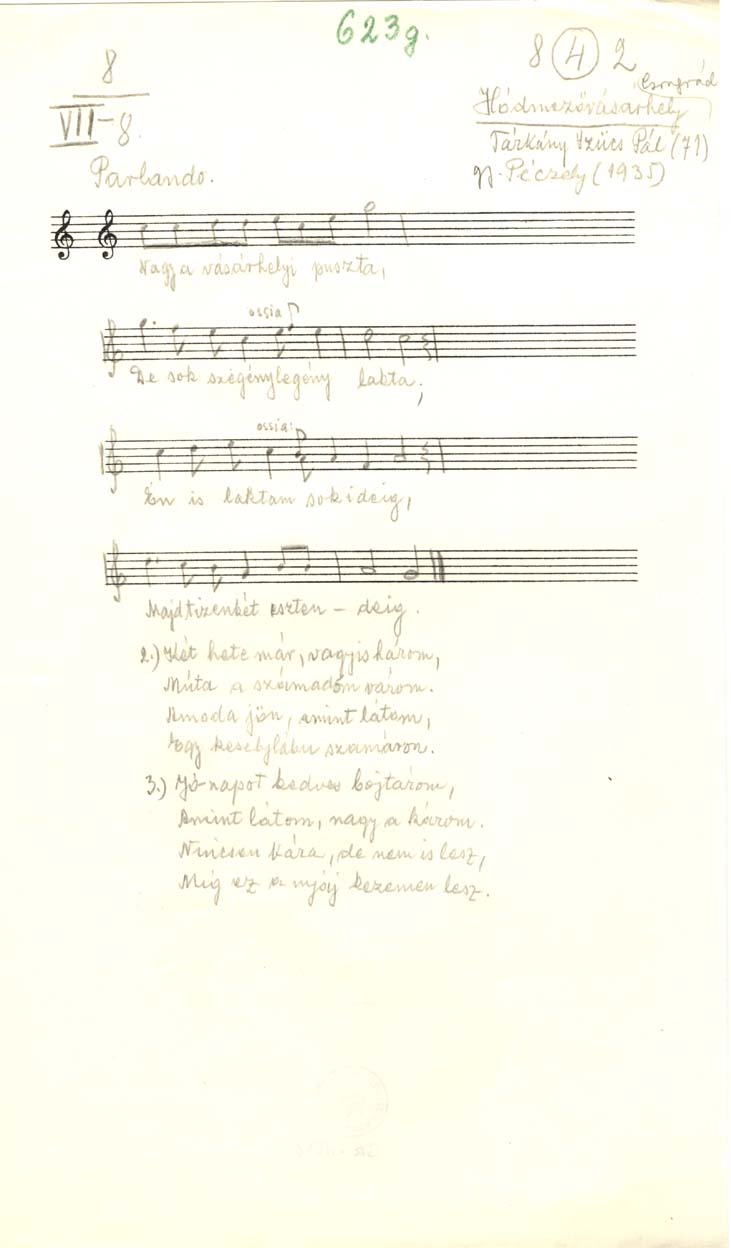 623g.
8 4 2
8
VII-8.
Csongrád
Hódmezővásárhely
Tárkány Szücs Pál (71)
Gy. Péczely (1935)
Parlando.
Nagy a vásárhelyi puszta,
ossia
De sok szegénylegény lakta;
ossia:
Én is laktam sok ideig,
Majd tizenkét eszten - deig.
2.) Két hete már, vagyis három,
Múta a számadóm várom.
Amoda jön, amint látom,
Egy keselylábu szamáron.
3.) Jó napot kedves bojtárom,
Amint látom, nagy a károm.
Nincsen kára, de nem is lesz,
Míg ez a nyjój kezemen lesz.